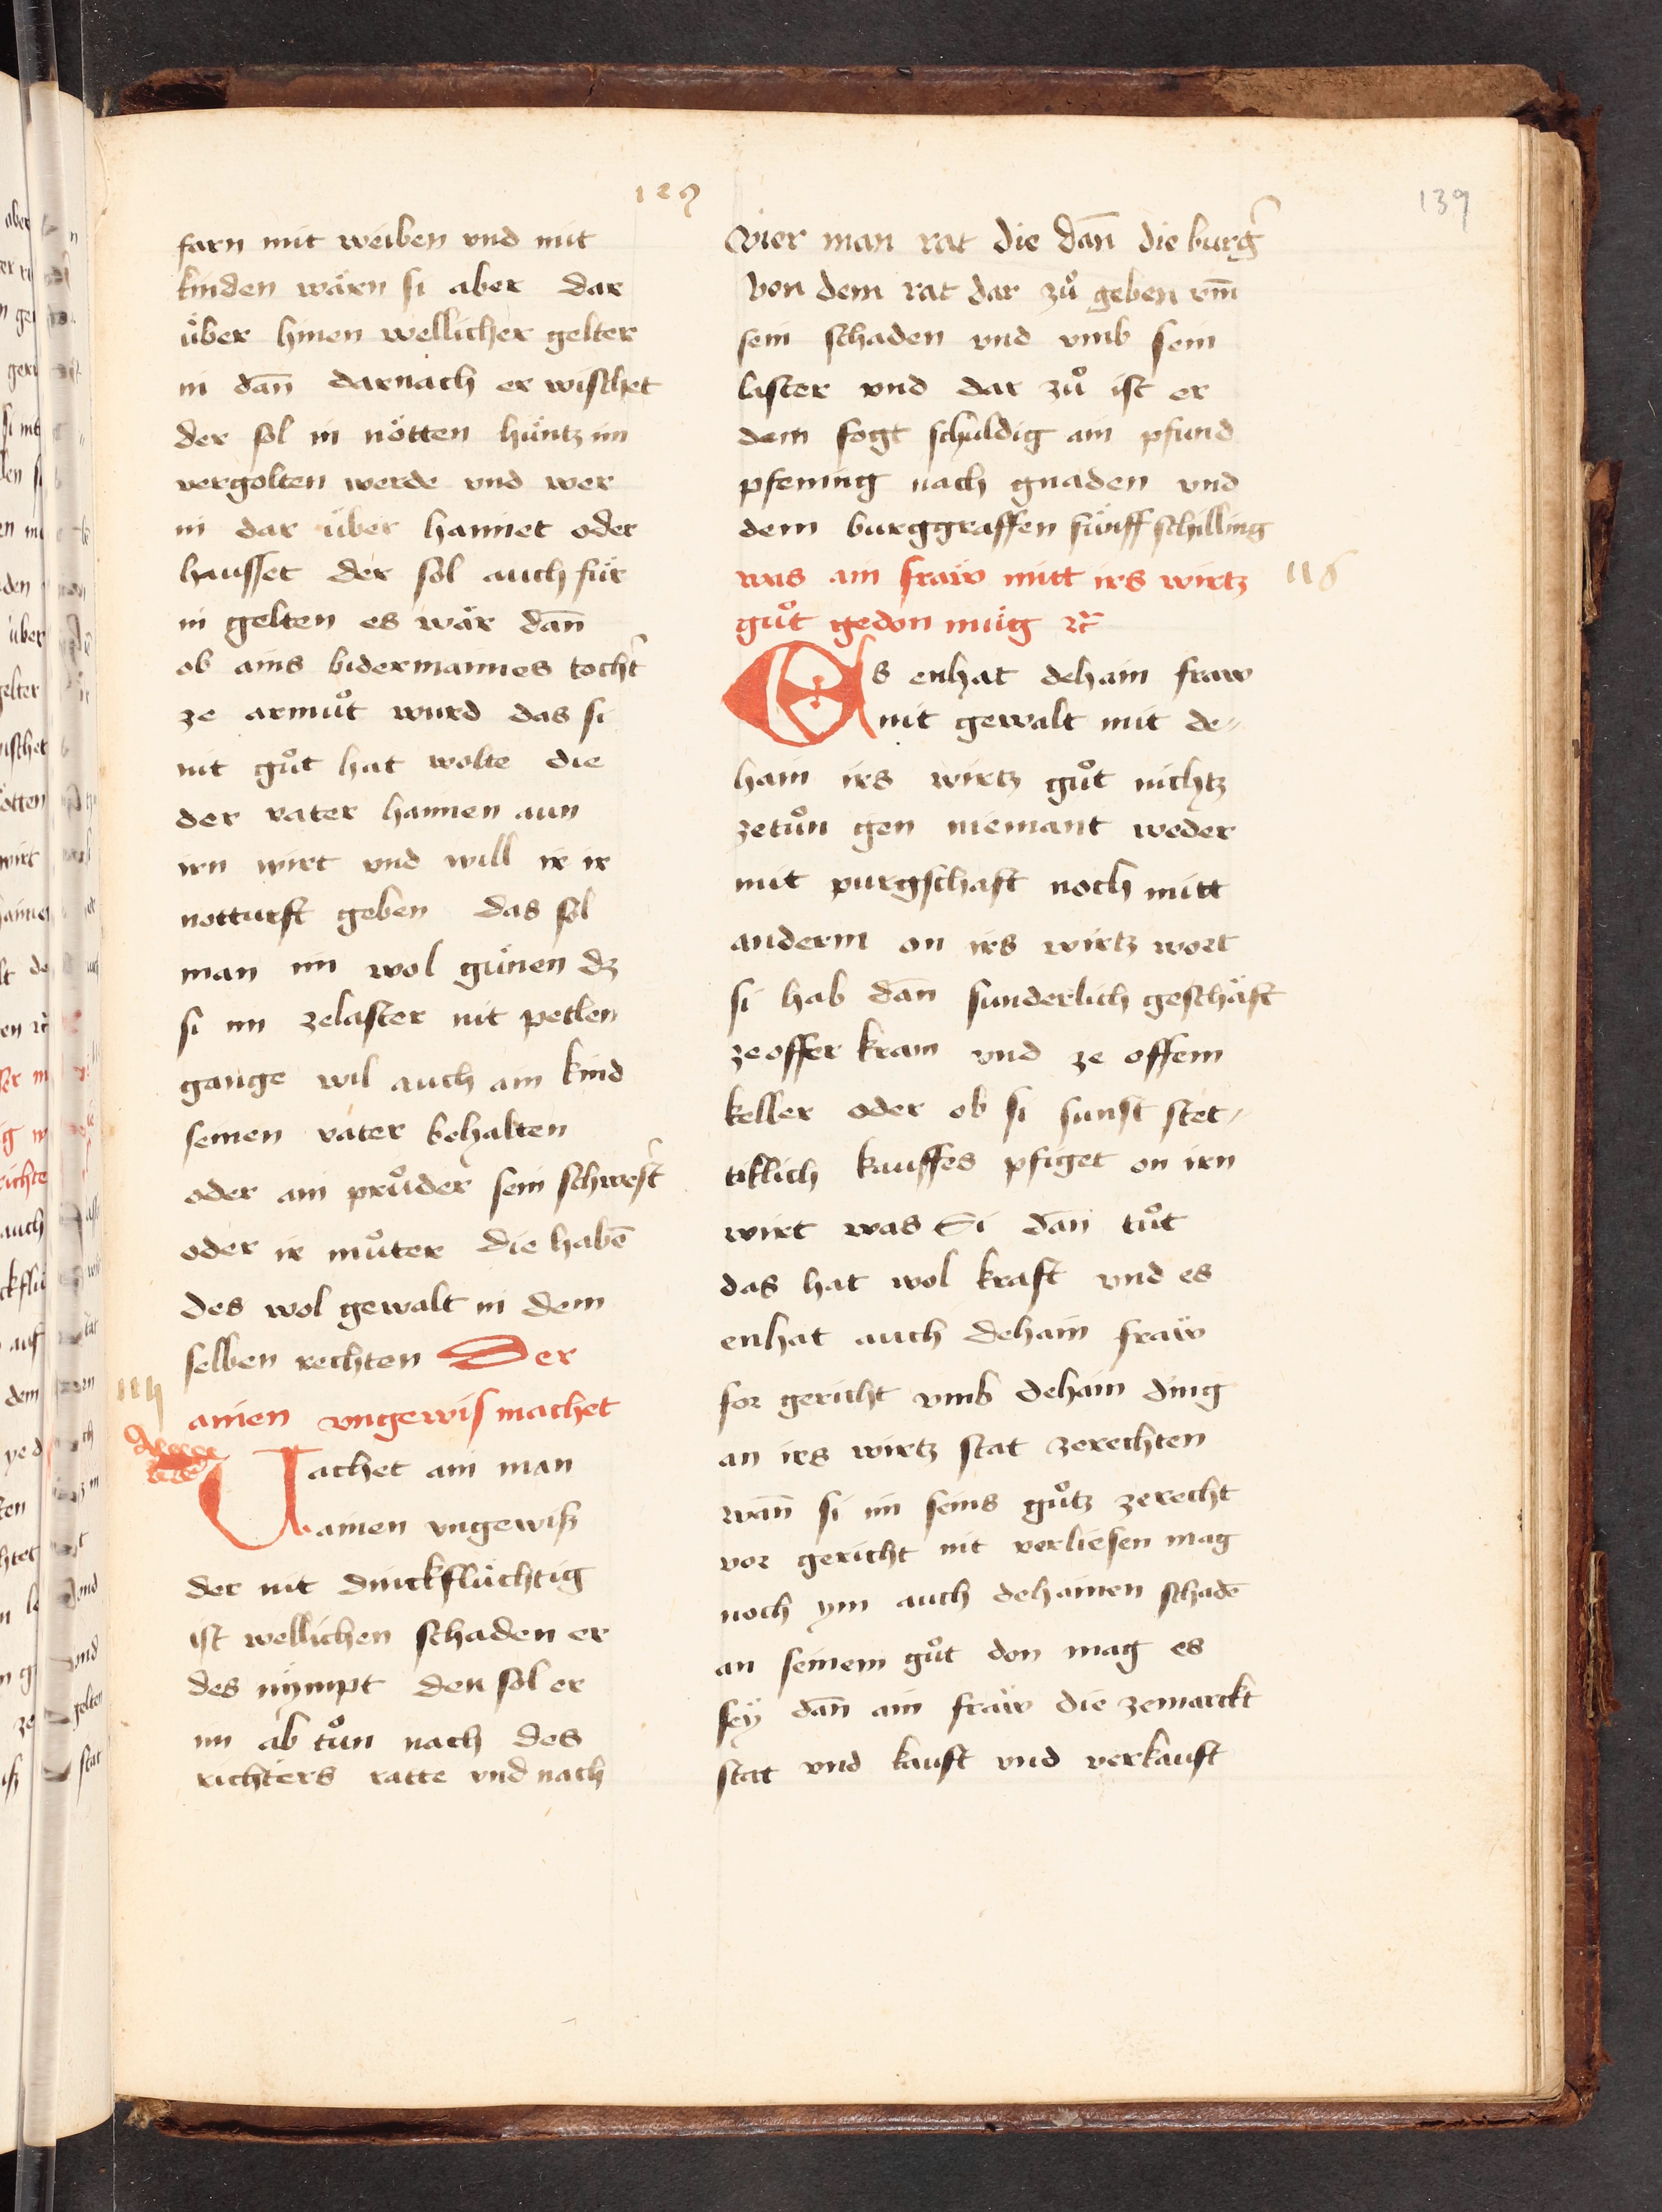 129
139
farn mit weiben vnd mit
kinden wärn si aber dar
über hinen wellicher gelter
in dan̄ darnach er wischet
der sol in nötten hüntz im
vergolten werde vnd wer
in dar über haimet oder
hausset der sol auch für
in gelten es wär dan̄
ob ains bidermannes tocht̉
ze armůt wurd das si
nit gůt hat wolte die
der vater haimen aun
irn wirt vnd will ir ir
notturft geben das sol
man im wol günen dz
si im zelaster nit petlen
gange wil auch ain kind
seinen vater behalten
oder ain průder sein schwest̉
oder ir můter die habē
des wol gewalt in dem
selben rechten Der
114
ainen vngewis machet
achet ain man
ainen vngewiß
der nit dinckflüchtig
ist wellichen schaden er
des nympt den sol er
im ab tůn nach des
richters ratte vnd nach
vier man rat die dan̄ die burg̉
von dem rat dar zů geben vm̄
sein schaden vnd vmb sein
laster vnd dar zů ist er
dem fogt schuldig ain pfund
pfening nach gnaden vnd
dem burggraffen fünff schilling
was ain fraw mitt irs wirtz
116
gůt gedon müg ꝛc̄
Es enhat dehain fraw
nit gewalt mit de-
hain irs wirtz gůt nichtz
zetůn gen niemant weder
mit purgschaft noch mitt
anderm on irs wirtz wort
si hab dan̄ sunderlich geschäft
ze offer kram vnd ze offem
keller oder ob si sunst stet-
tiklich kauffes pfiget on irn
wirt was Si dan̄ tůt
das hat wol kraft vnd es
enhat auch dehain fraw
for gericht vmb dehain ding
an irs wirtz stat zerechten
wan̄ si im seins gůtz zerecht
vor gericht nit verliesen mag
noch ym auch dehainen schadē
an seinem gůt don mag es
sey dan̄ ain fraw die zemarckt
stat vnd kauft vnd verkauft